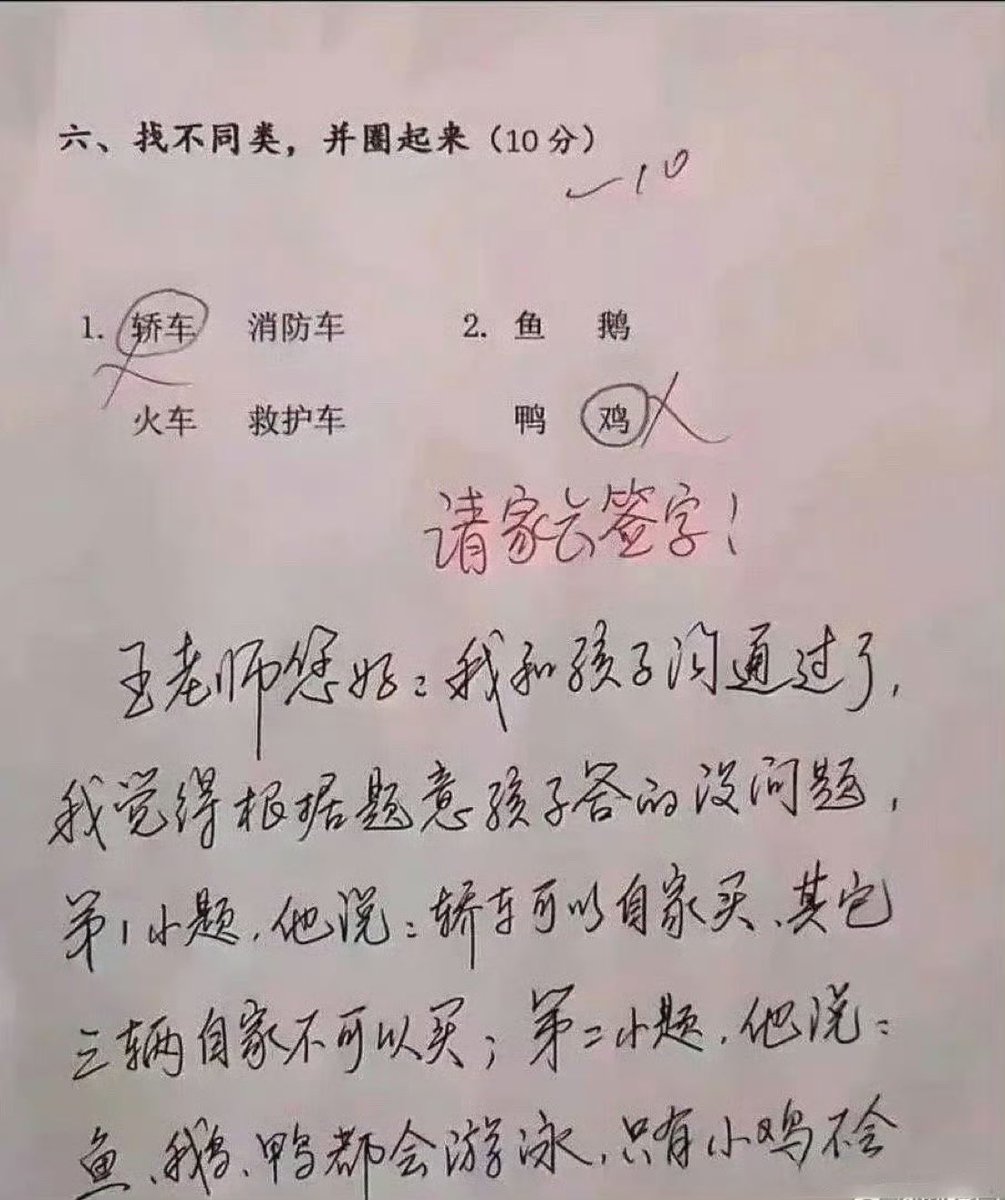 六、找不同类，并圈起来（10 分）
-10
1. 轿车 消防车 2. 鱼 鹅
火车 救护车 鸭 鸡
请家长签字！
王老师您好：我和孩子沟通过了，
我觉得根据题意孩子答的没问题，
第1小题，他说：轿车可以自家买、其它
三辆自家不可以买；第二小题，他说：
鱼、鹅、鸭都会游泳，只有小鸡不会